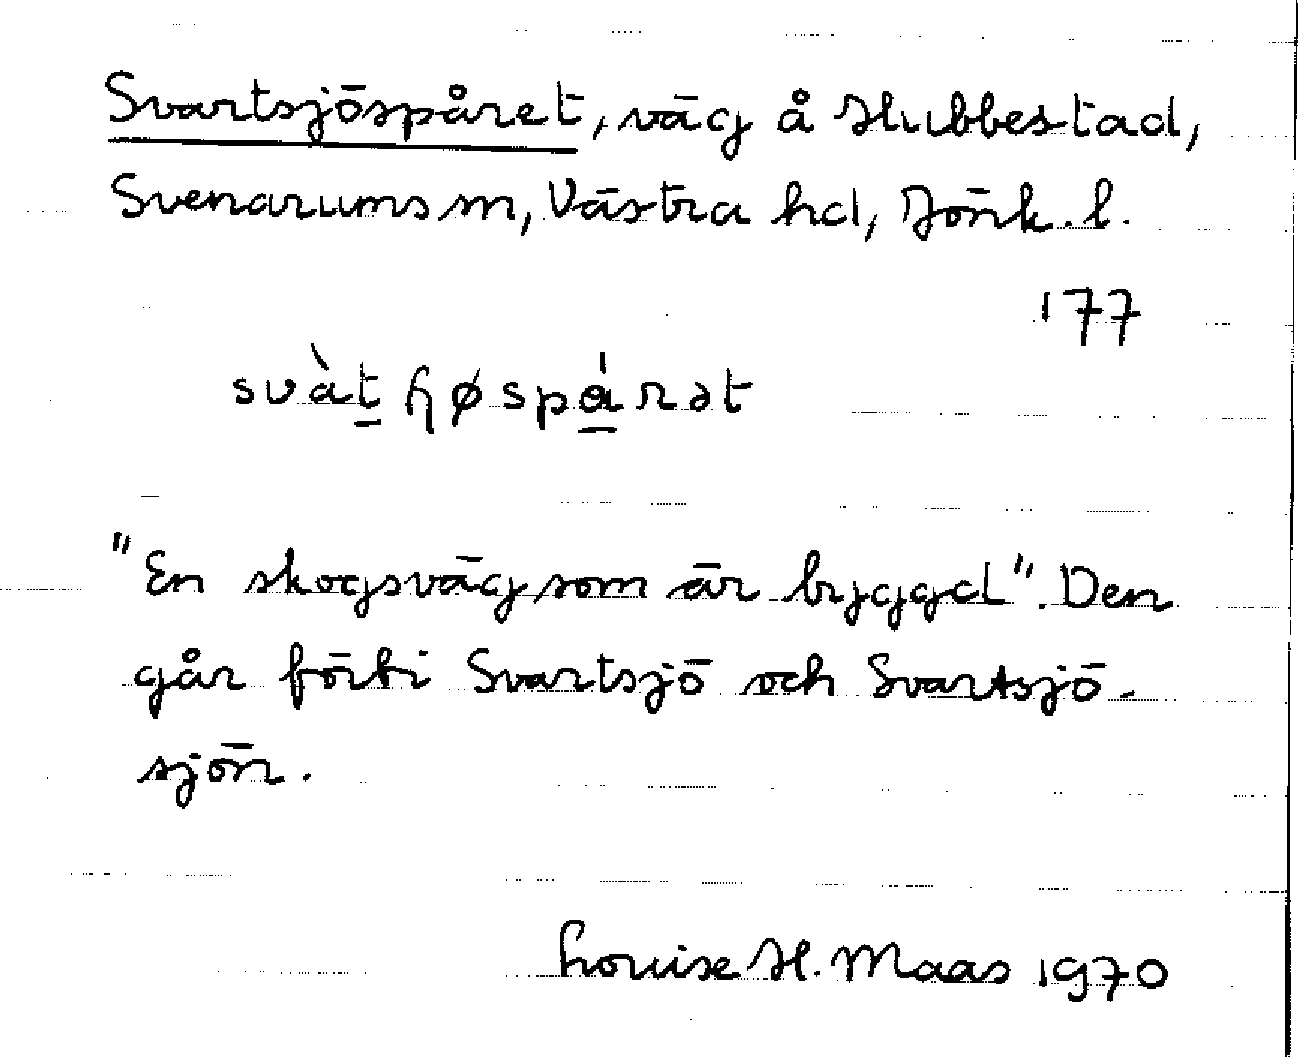 Svartsjöspåret, väg å Hubbestad,
Svenarums sn, Västra hd, Jönk. l.
177
svàt̠ ɧøspá̠rət
"En skogsväg som är byggd". Den
går förbi Svartsjö och Svartsjö-
sjön.
Louise H. Maas 1970